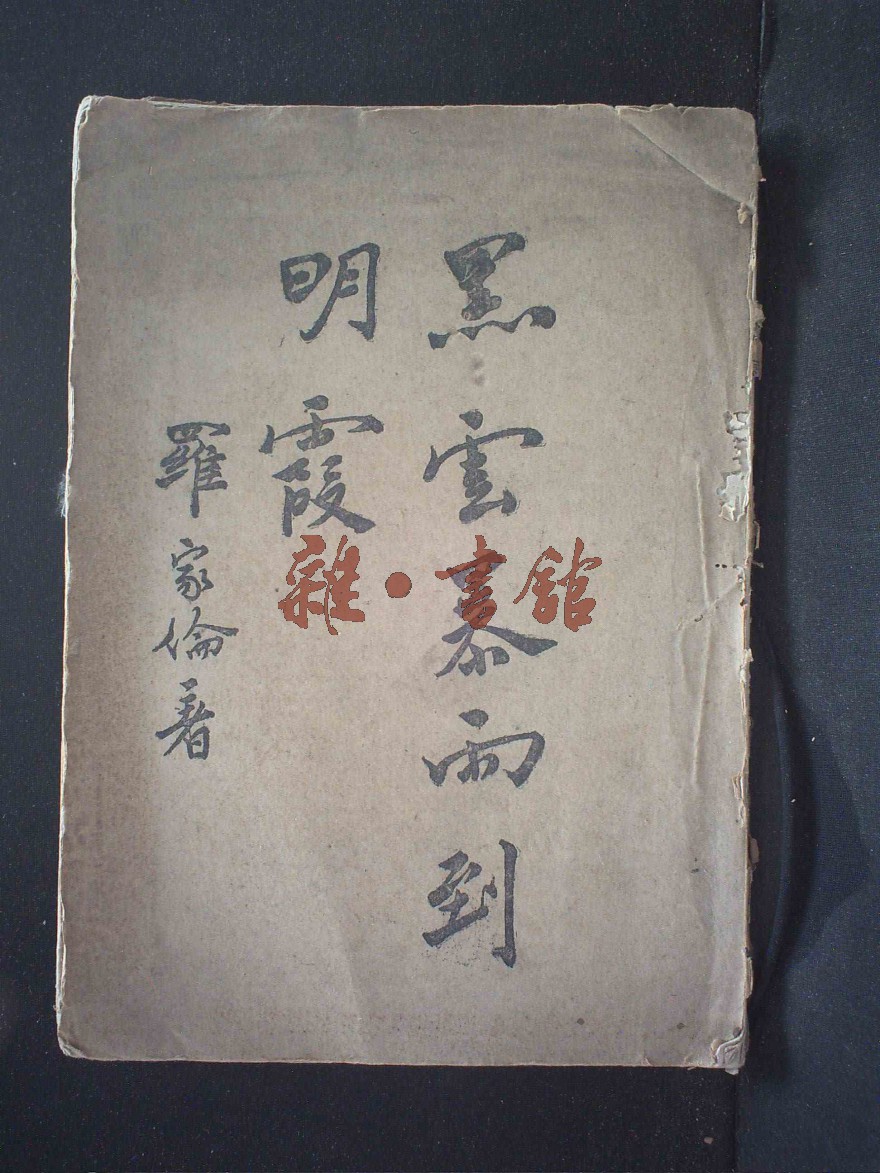 黑雲暴雨到
明霞
羅家倫著
雜·書舘